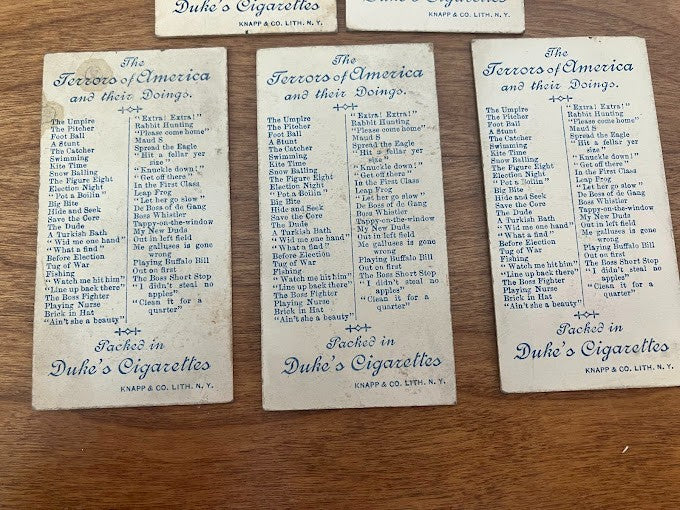 Duke's Cigarettes
KNAPP & CO. LITH. N. Y.
Duke's Cigarettes
KNAPP & CO. LITH. N. Y.
The
Terrors of America
and their Doings.
The Umpire
The Pitcher
Foot Ball
A Stunt
The Catcher
Swimming
Kite Time
Snow Balling
The Figure Eight
Election Night
"Pot a Boilin"
Big Bite
Hide and Seek
Save the Core
The Dude
A Turkish Bath
"Wid me one hand"
"What a find"
Before Election
Tug of War
Fishing
"Watch me hit him"
"Line up back there"
The Boss Fighter
Playing Nurse
Brick in Hat
"Ain't she a beauty"
"Extra! Extra!"
Rabbit Hunting
"Please come home"
Maud S
Spread the Eagle
"Hit a fellar yer
size"
"Knuckle down!"
"Get off there"
In the First Class
Leap Frog
"Let her go slow"
De Boss of de Gang
Boss Whistler
Tappy-on-the-window
My New Duds
Out in left field
Me galluses is gone
wrong
Playing Buffalo Bill
Out on first
The Boss Short Stop
"I didn't steal no
apples"
"Clean it for a
quarter"
Packed in
Duke's Cigarettes
KNAPP & CO. LITH. N. Y.
The
Terrors of America
and their Doings.
The Umpire
The Pitcher
Foot Ball
A Stunt
The Catcher
Swimming
Kite Time
Snow Balling
The Figure Eight
Election Night
"Pot a Boilin"
Big Bite
Hide and Seek
Save the Core
The Dude
A Turkish Bath
"Wid me one hand"
"What a find"
Before Election
Tug of War
Fishing
"Watch me hit him"
"Line up back there"
The Boss Fighter
Playing Nurse
Brick in Hat
"Ain't she a beauty"
"Extra! Extra!"
Rabbit Hunting
"Please come home"
Maud S
Spread the Eagle
"Hit a fellar yer
size"
"Knuckle down!"
"Get off there"
In the First Class
Leap Frog
"Let her go slow"
De Boss of de Gang
Boss Whistler
Tappy-on-the-window
My New Duds
Out in left field
Me galluses is gone
wrong
Playing Buffalo Bill
Out on first
The Boss Short Stop
"I didn't steal no
apples"
"Clean it for a
quarter"
Packed in
Duke's Cigarettes
KNAPP & CO. LITH. N. Y.
The
Terrors of America
and their Doings.
The Umpire
The Pitcher
Foot Ball
A Stunt
The Catcher
Swimming
Kite Time
Snow Balling
The Figure Eight
Election Night
"Pot a Boilin"
Big Bite
Hide and Seek
Save the Core
The Dude
A Turkish Bath
"Wid me one hand"
"What a find"
Before Election
Tug of War
Fishing
"Watch me hit him"
"Line up back there"
The Boss Fighter
Playing Nurse
Brick in Hat
"Ain't she a beauty"
"Extra! Extra!"
Rabbit Hunting
"Please come home"
Maud S
Spread the Eagle
"Hit a fellar yer
size"
"Knuckle down!"
"Get off there"
In the First Class
Leap Frog
"Let her go slow"
De Boss of de Gang
Boss Whistler
Tappy-on-the-window
My New Duds
Out in left field
Me galluses is gone
wrong
Playing Buffalo Bill
Out on first
The Boss Short Stop
"I didn't steal no
apples"
"Clean it for a
quarter"
Packed in
Duke's Cigarettes
KNAPP & CO. LITH. N. Y.